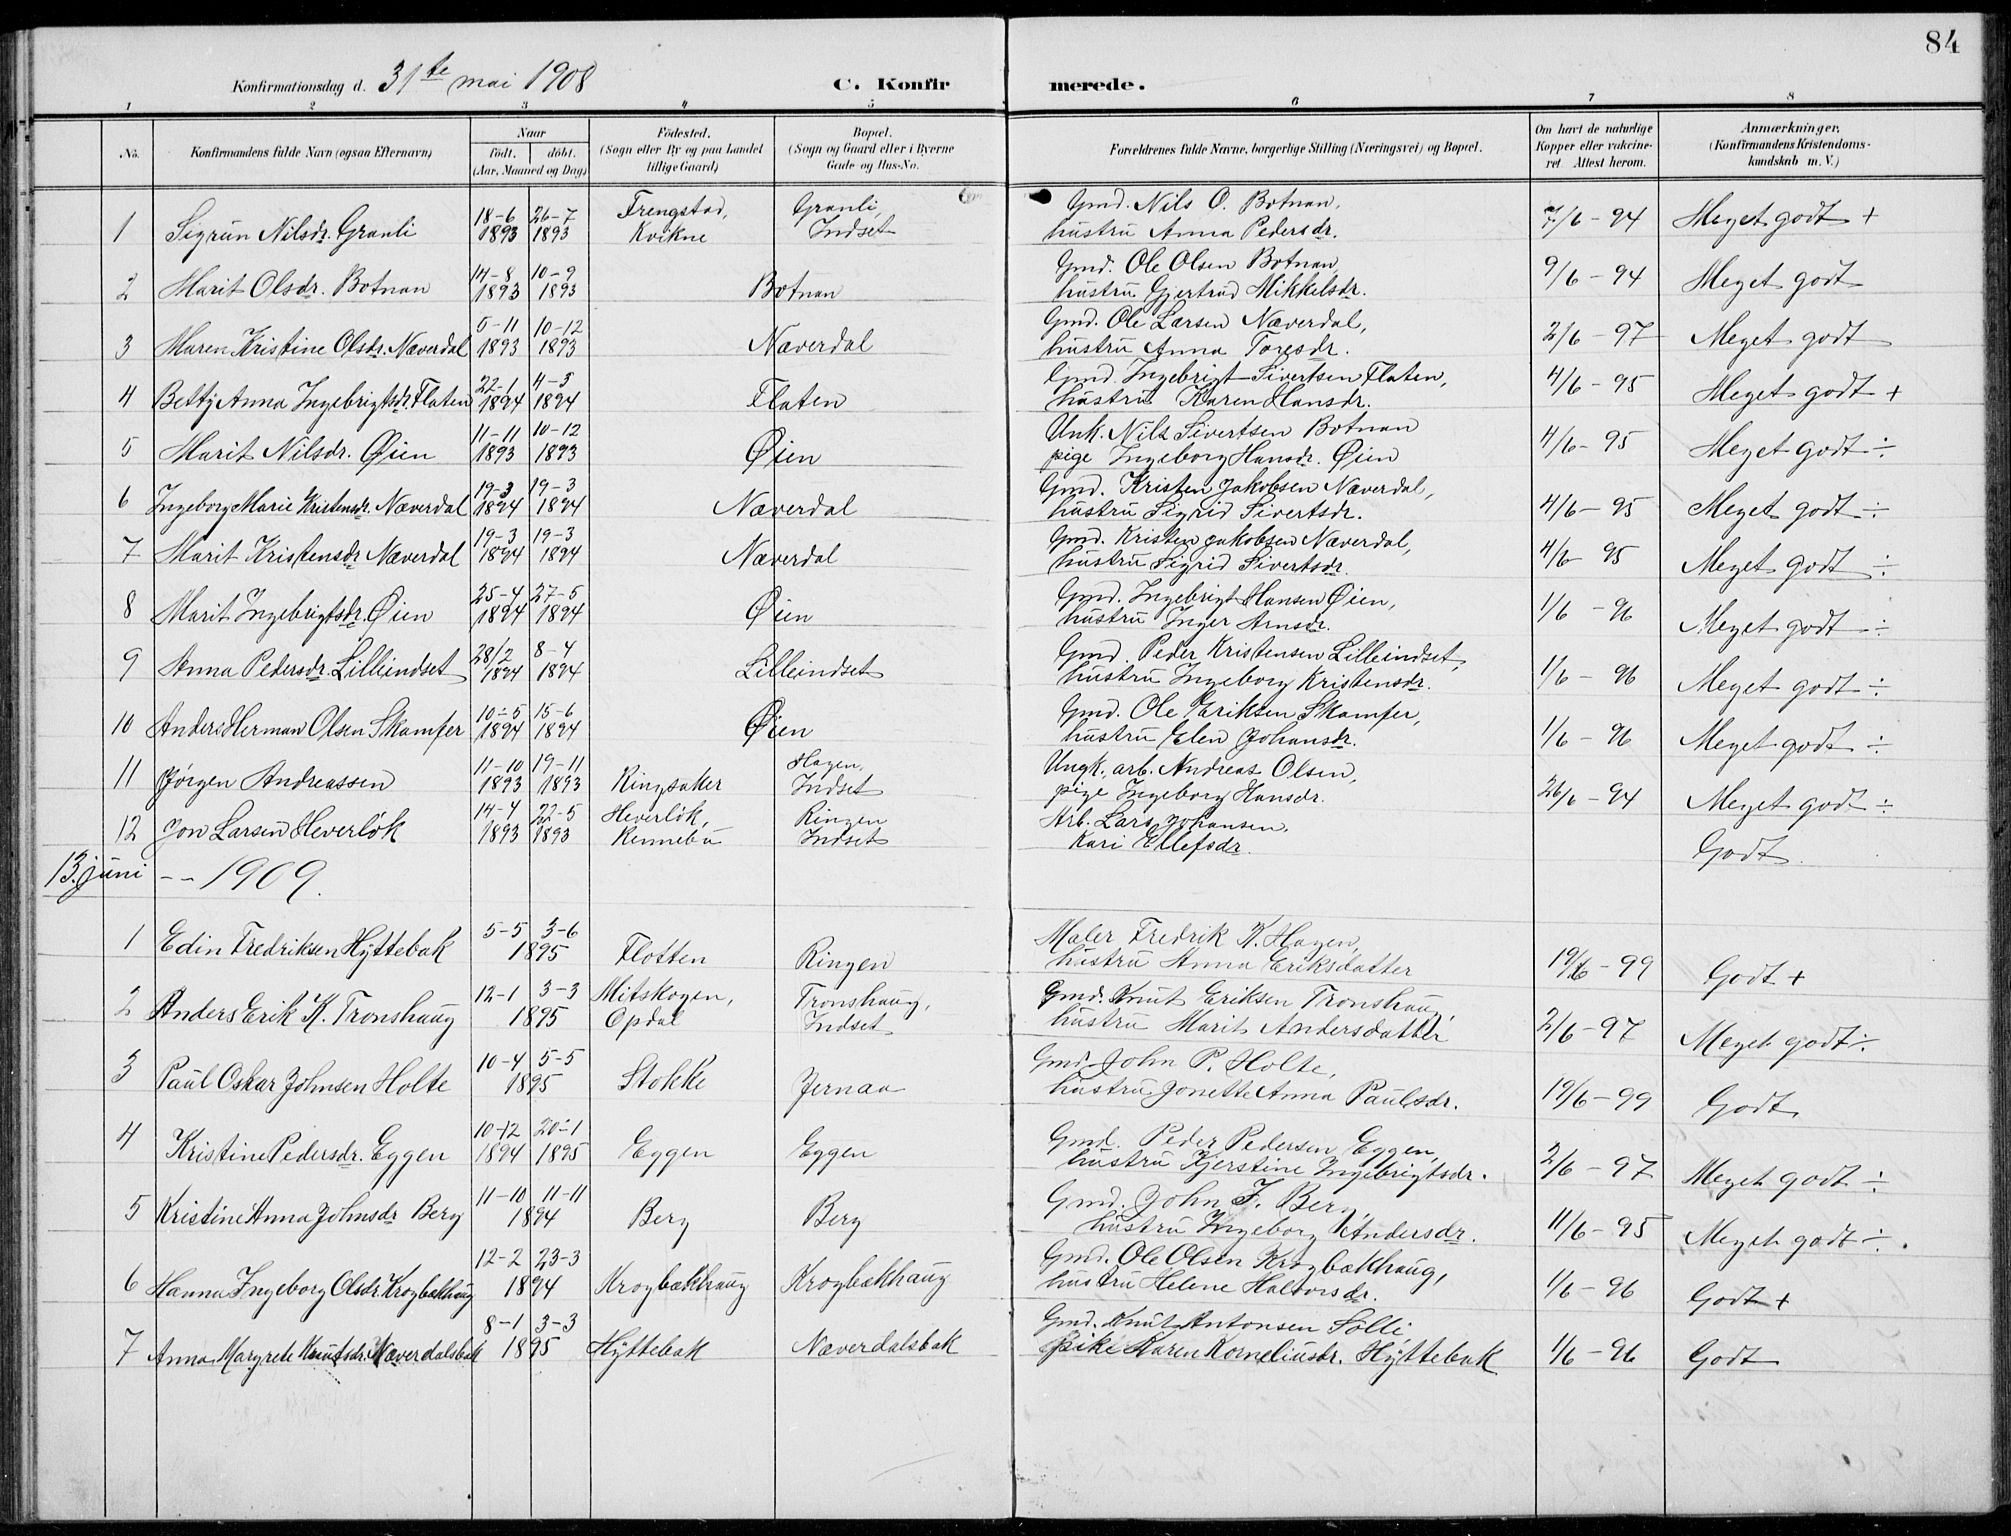 84
Konfirmationsdag d. 31te mai 1908 C. Konfirmerede.
1 2 3 4 5 6 7 8
No. Konfirmandens fulde Navn (ogsaa Efternavn) Naar födt. döbt. (Aar, Maaned og Dag) Födested. (Sogn eller By og paa Landet tillige Gaard) Bopæl. (Sogn og Gaard eller i Byerne Gade og Hus-No. Forældrenes fulde Navne, borgerlige Stilling (Næringsvei) og Bopæl. Om havt de naturlige Kopper eller vakcineret. Attest herom. Anmærkninger. (Konfirmandens Kristendomskundskab m. V.)
1 Sigrun Nilsdr. Granli 18-6 1893 26-7 1893 Frengstad, Kvikne Granli, Indset Gmd. Nils O. Botnan, hustru Anna Pedersdr. 7/6-94 Meget godt +
2 Marit Olsdr. Botnan 14-8 1893 10-9 1893 Botnan Gmd. Ole Olsen Botnan, hustru Gjertrud Mikkelsdr. 9/6-94 Meget godt
3 Maren Kristine Olsdr. Næverdal 5-11 1893 10-12 1893 Næverdal Gmd. Ole Larsen Næverdal, hustru Anna Toresdr. 2/6-97 Meget godt
4 Betty Anna Ingebrigtsdr. Floten 22-1 1894 4-3 1894 Floten Gmd. Ingebrigt Sivertsen Floten, hustru Karen Hansdr. 4/6-95 Meget godt +
5 Marit Nilsdr. Øien 11-11 1893 10-12 1893 Øien Unk. Nils Sivertsen Botnan pige Ingeborg Hansdr. Øien 4/6-95 Meget godt ÷
6 Ingeborg Marie Kristensdr. Næverdal 19-3 1894 19-3 1894 Næverdal Gmd. Kristen Jakobsen Næverdal, hustru Sigrid Sivertsdr. 4/6-95 Meget godt ÷
7 Marit Kristensdr. Næverdal 19-3 1894 19-3 1894 Næverdal Gmd. Kristen Jakobsen Næverdal, hustru Sigrid Sivertsdr. 4/6-95 Meget godt ÷
8 Marit Ingebrigtsdr. Øien 25-4 1894 27-5 1894 Øien Gmd. Ingebrigt Hansen Øien, hustru Inger Arnsdr. 1/6-96 Meget godt ÷
9 Anna Pedersdr. Lilleindset 28/2 1894 8-4 1894 Lilleindset Gmd. Peder Kristensen Lilleindset, hustru Ingeborg Kristensdr. 1/6-96 Meget godt ÷
10 Anders Herman Olsen Skamfer 10-5 1894 15-6 1894 Øien Gmd. Ole Eriksen Skamfer, hustru Elen Johansdr. 1/6-96 Meget godt ÷
11 Jørgen Andreassen 11-10 1893 19-11 1893 Ringsaker Hagen, Indset Ungk. arb. Andreas Olsen, pige Ingeborg Hansdr. 26/6-94 Meget godt ÷
12 Jon Larsen Heverløk 14-4 1893 22-5 1893 Heverløk, Rennebu Ringen Indset Arb. Lars Johansen, Kari Ellefsdr. Godt.
13. juni -- 1909.
1 Edin Fredriksen Hyttebak 5-5 3-6 1895 Flotten Ringen Maler Fredrik K. Hagen, hustru Anna Eriksdatter 19/6-99 Godt +
2 Anders Erik K. Tronshaug 12-1 3-3 1895 Mitskogen, Opdal Tronshaug, Indset Gmd. Knut Eriksen Tronshaug, hustru Marit Andersdatter 2/6-97 Meget godt ÷
3 Paul Oskar Johnsen Holte 10-4 5-5 1895 Stokke Jernaa Gmd. John P. Holte, hustru Jonette Anna Paulsdr. 19/6-99 Godt
4 Kristine Pedersdr. Eggen 10-12 1894 20-1 1895 Eggen Eggen Gmd. Peder Pedersen Eggen, hustru Kjerstine Ingebrigtsdr. 2/6-97 Meget godt ÷
5 Kristine Anna Johnsdr Berg 11-10 11-11 1894 Berg Berg Gmd. John F. Berg, hustru Ingeborg Andersdr. 11/6-95 Meget godt ÷.
6 Hanna Ingeborg Olsdr. Krogbækhaug 12-2 23-3 1894 Krogbækhaug Krogbækhaug Gmd. Ole Olsen Krogbækhaug, hustru Helene Halvorsdr. 1/6-96 Godt +
7 Anna Margrete Knutsdr. Næverdalsbak 8-1 3-3 1895 Hyttebak Næverdalsbak Gmd. Knut Antonsen Solli pike Karen Korneliusdr. Hyttebak 1/6-96 Godt